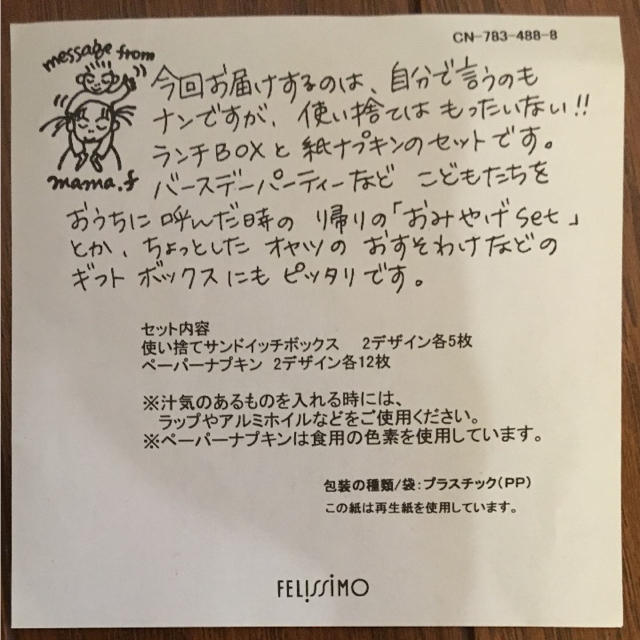 CN-783-488-8
message from
mama.f
今回お届けするのは、自分で言うのも
ナンですが、使い捨てはもったいない!!
ランチBOXと紙ナプキンのセットです。
バースデーパーティーなど こどもたちを
おうちに呼んだ時の 帰りの「おみやげset」
とか、ちょっとした オヤツの おすそわけなどの
ギフト ボックスにも ピッタリです。
セット内容
使い捨てサンドイッチボックス 2デザイン各5枚
ペーパーナプキン 2デザイン各12枚
※汁気のあるものを入れる時には、
ラップやアルミホイルなどをご使用ください。
※ペーパーナプキンは食用の色素を使用しています。
包装の種類/袋:プラスチック(PP)
この紙は再生紙を使用しています。
FELISSIMO